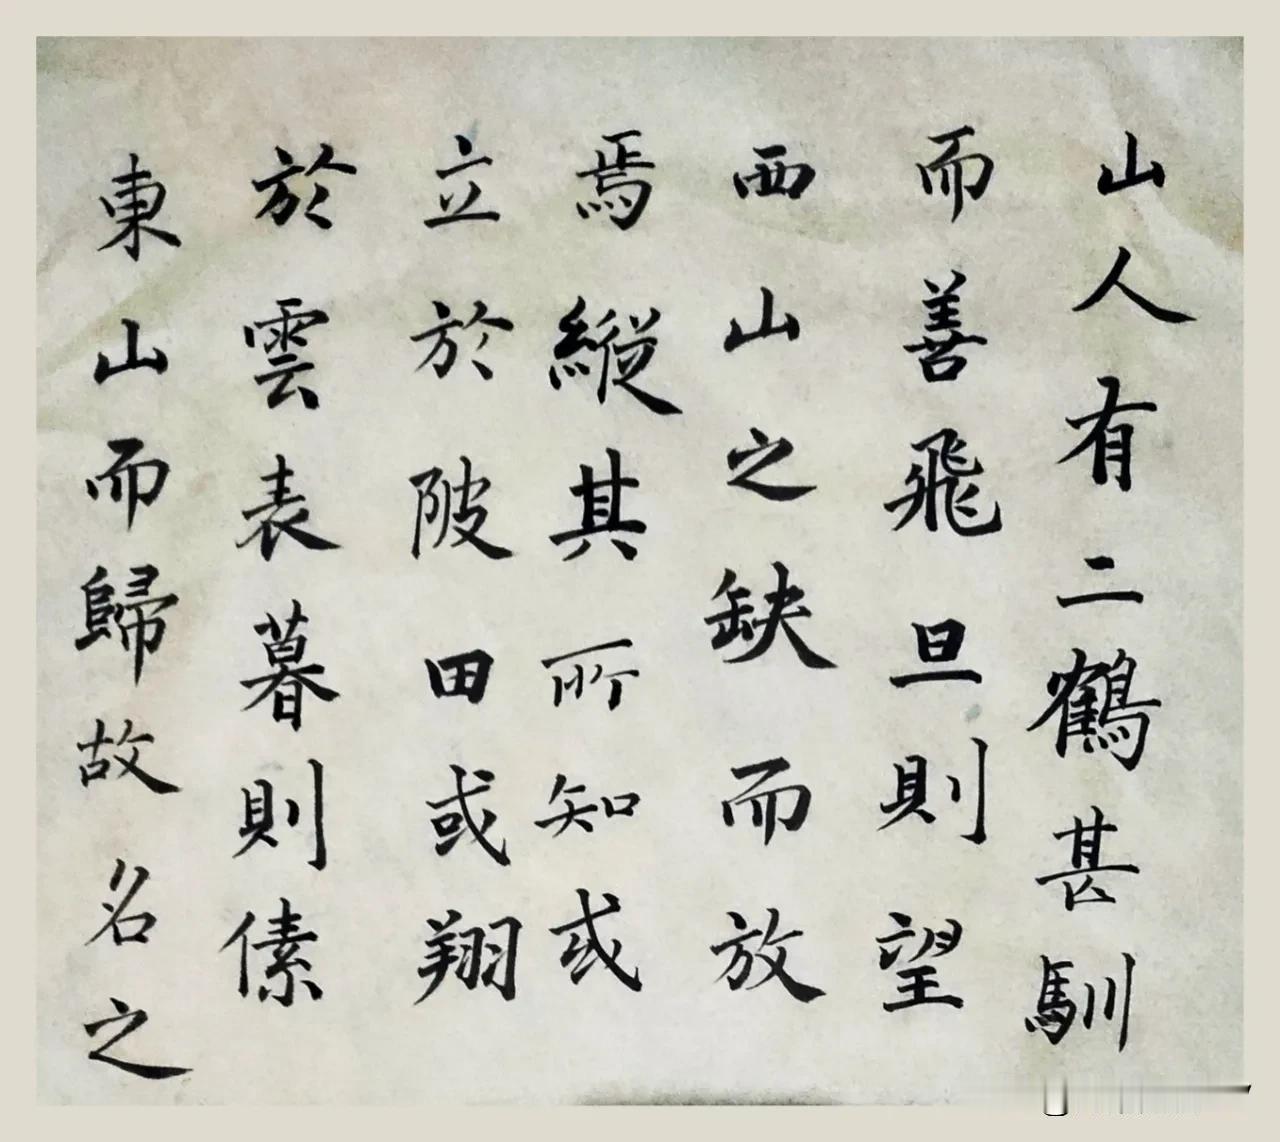 山人有二鶴甚馴
而善飛旦則望
西山之缺而放
焉縱其所知或
立於陂田或翔
於雲表暮則傃
東山而歸故名之